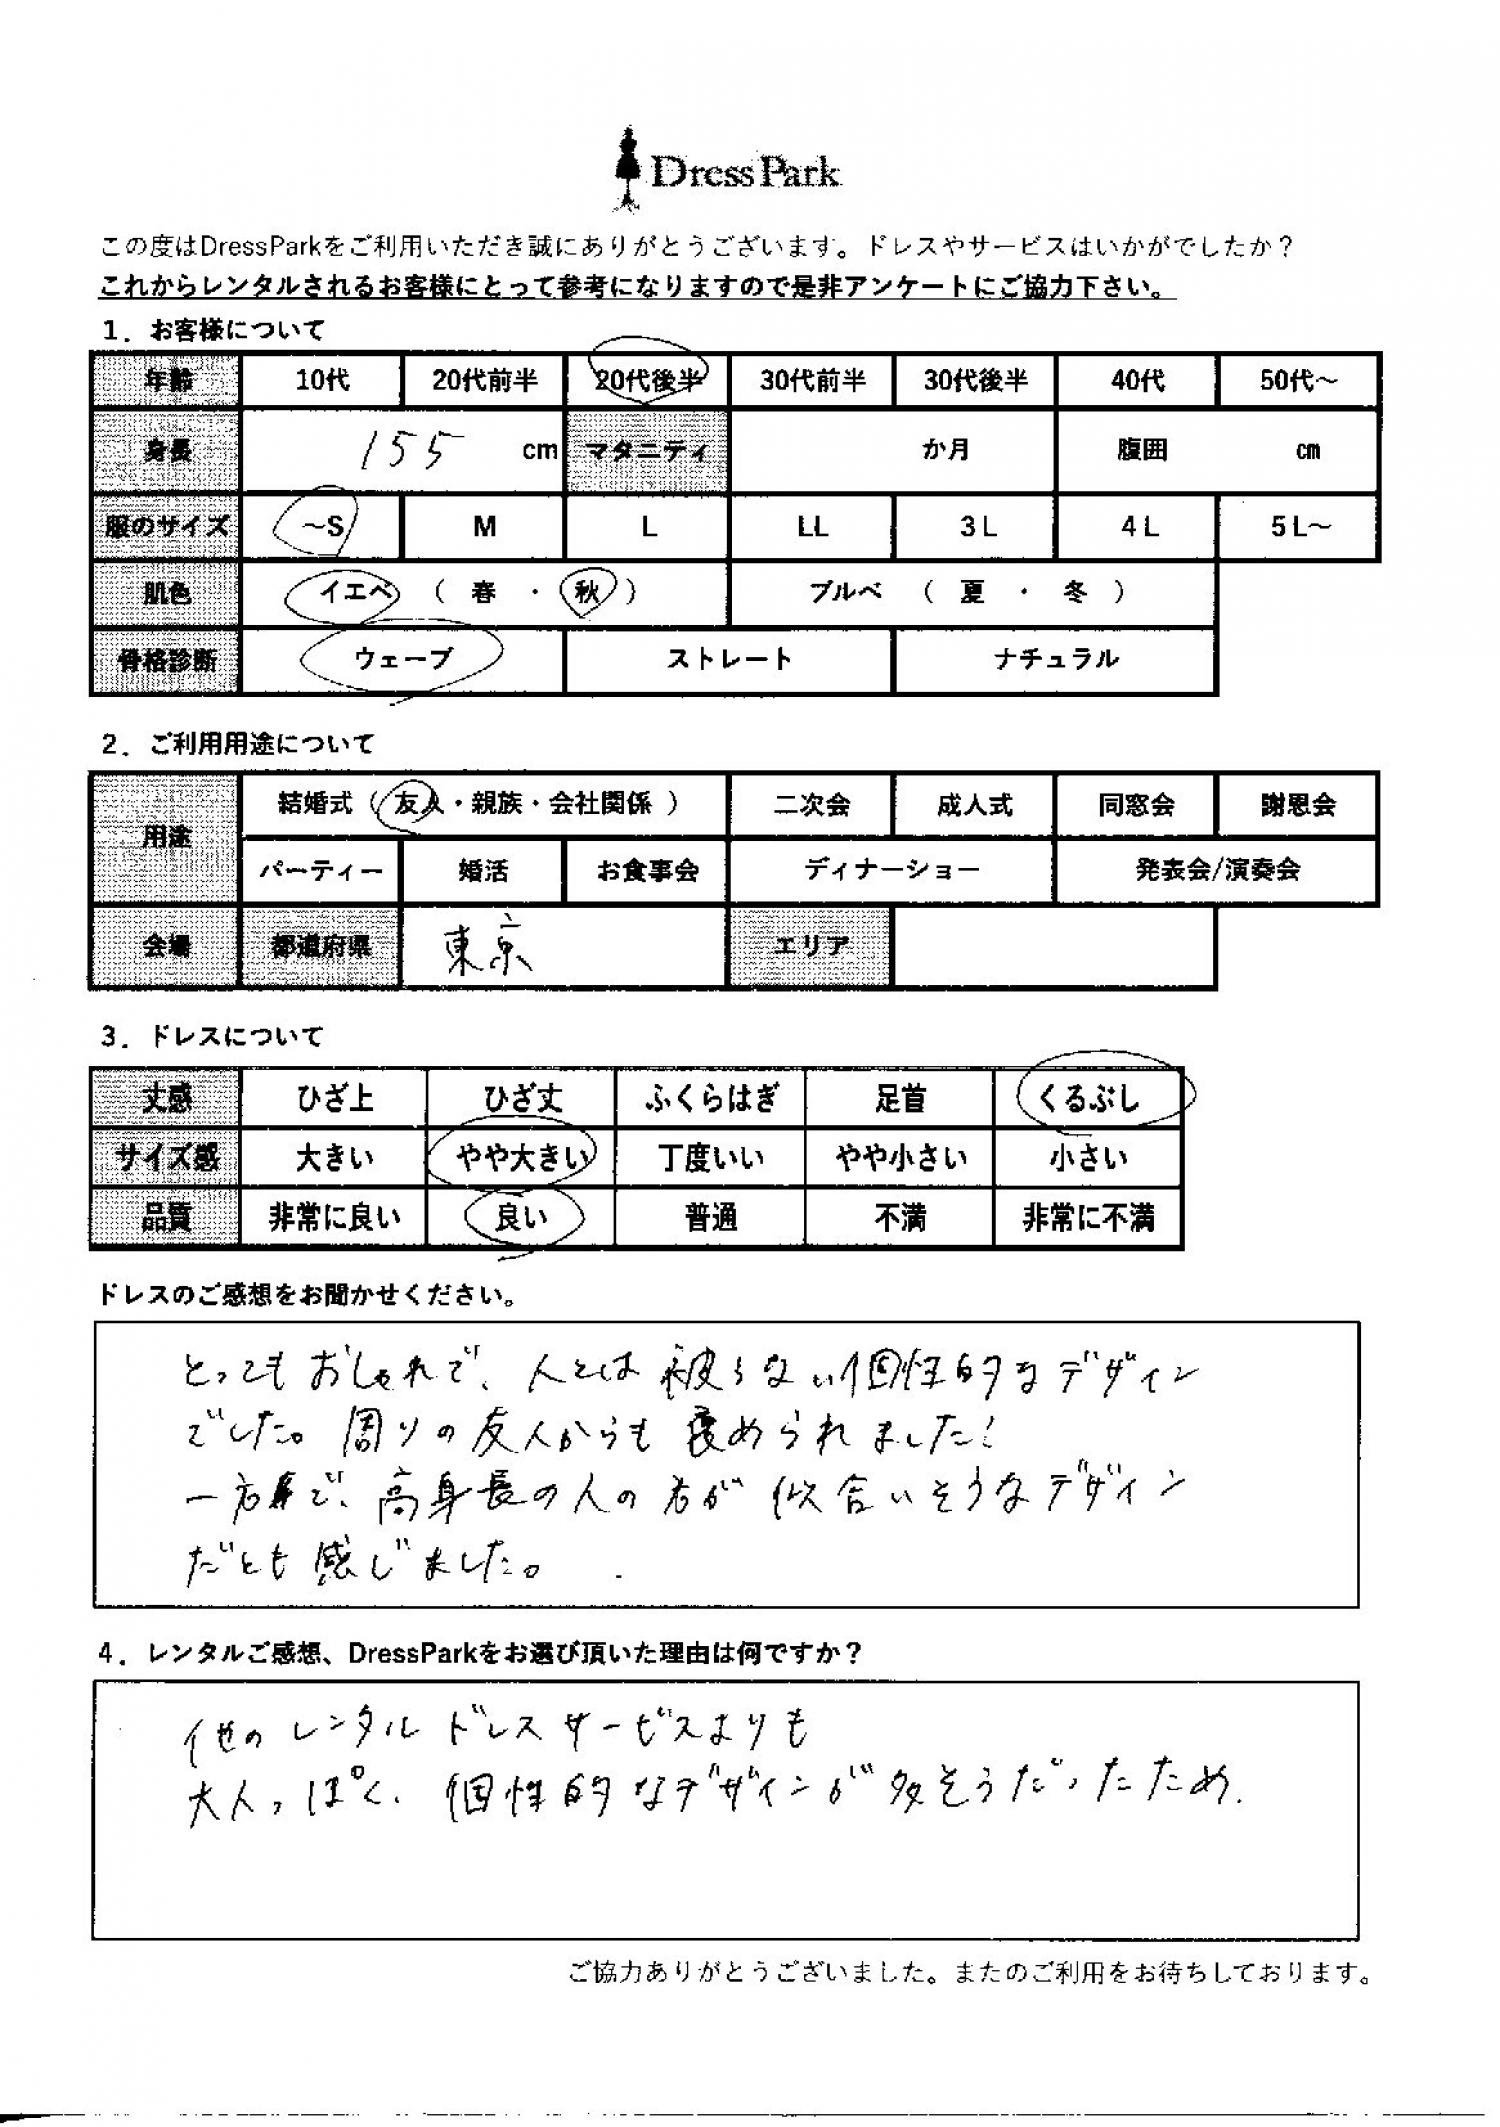 DressPark
この度はDressParkをご利用いただき誠にありがとうございます。ドレスやサービスはいかがでしたか？
これからレンタルされるお客様にとって参考になりますので是非アンケートにご協力下さい。
1．お客様について
年齢 10代 20代前半 20代後半 30代前半 30代後半 40代 50代～
身長 155 cm マタニティ か月 腹囲 ㎝
服のサイズ ～S M L LL 3L 4L 5L～
肌色 イエベ （ 春 ・ 秋 ） ブルベ （ 夏 ・ 冬 ）
骨格診断 ウェーブ ストレート ナチュラル
2．ご利用用途について
用途 結婚式（ 友人・親族・会社関係 ） 二次会 成人式 同窓会 謝恩会
パーティー 婚活 お食事会 ディナーショー 発表会/演奏会
会場 都道府県 東京 エリア
3．ドレスについて
丈感 ひざ上 ひざ丈 ふくらはぎ 足首 くるぶし
サイズ感 大きい やや大きい 丁度いい やや小さい 小さい
品質 非常に良い 良い 普通 不満 非常に不満
ドレスのご感想をお聞かせください。
とってもおしゃれで、人とは被らない個性的なデザイン
でした。周りの友人からも褒められました！
一方で、高身長の人の方が似合いそうなデザイン
だとも感じました。
4．レンタルご感想、DressParkをお選び頂いた理由は何ですか？
他のレンタルドレスサービスよりも
大人っぽく、個性的なデザインが多そうだったため.
ご協力ありがとうございました。またのご利用をお待ちしております。